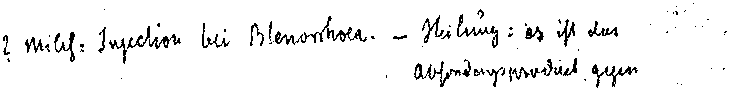 ? Milch: Injection bei Blenorrhoea. – Heilung: es ist das
Absonderungsproduct gegen